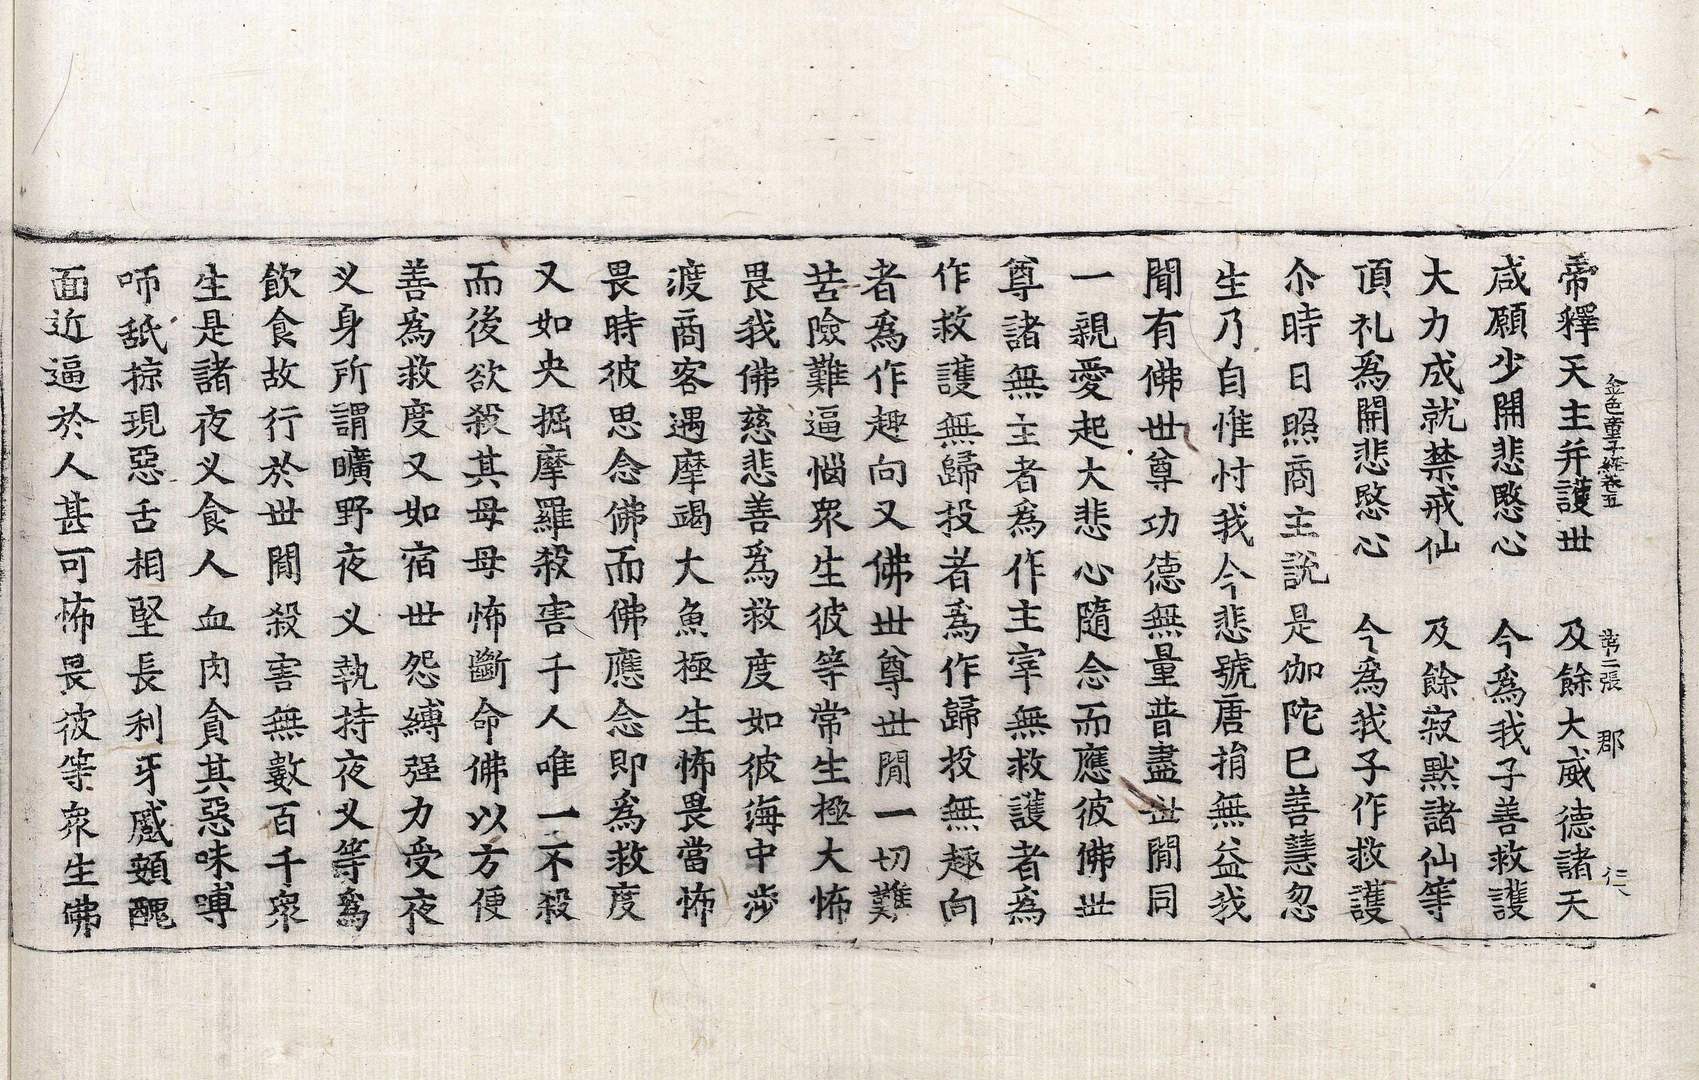 金色童子經卷五　第二張　郡　仁
帝釋天主并護世　及餘大威德諸天
咸願少開悲愍心　今爲我子善救護
大力成就禁戒仙　及餘寂默諸仙等
頂礼爲開悲愍心　今爲我子作救護
尒時日照商主說是伽陀巳善慧忽
生乃自惟忖我今悲號唐捐無益我
聞有佛世尊功德無量普盡世閒同
一親愛起大悲心隨念而應彼佛世
尊諸無主者爲作主宰無救護者爲
作救護無歸投者爲作歸投無趣向
者爲作趣向又佛世尊世閒一切難
苦險難逼惱衆生彼等常生極大怖
畏我佛慈悲善爲救度如彼海中涉
渡商客遇摩竭大魚極生怖畏當怖
畏時彼思念佛而佛應念即爲救度
又如央掘摩羅殺害千人唯一不殺
而後欲殺其母母怖斷命佛以方便
善爲救度又如宿世怨縛强力受夜
义身所謂曠野夜义執持夜义等爲
飲食故行於世閒殺害無數百千衆
生是諸夜义食人血肉貪其惡味嚩
㖞舐掠現惡舌相堅長利牙慼頞醜
面近逼於人甚可怖畏彼等衆生佛